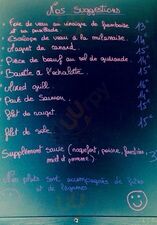 Nos Suggestions
* Foie de veau au vinaigre de framboise
et sa persillade 13
* Escalope de veau à la milanaise 14
* Magret de canard 15
* Pièce de boeuf au sel de guérande 15
* Bavette à l'échalotte 15
* Mixed grill 15
* Pavé de Saumon 15
filet de rouget 15
filet de sole
Supplément sauce (roquefort, poivre, forestière,
miel et pommes)
Nos plats sont accompagnés de frites
et de légumes